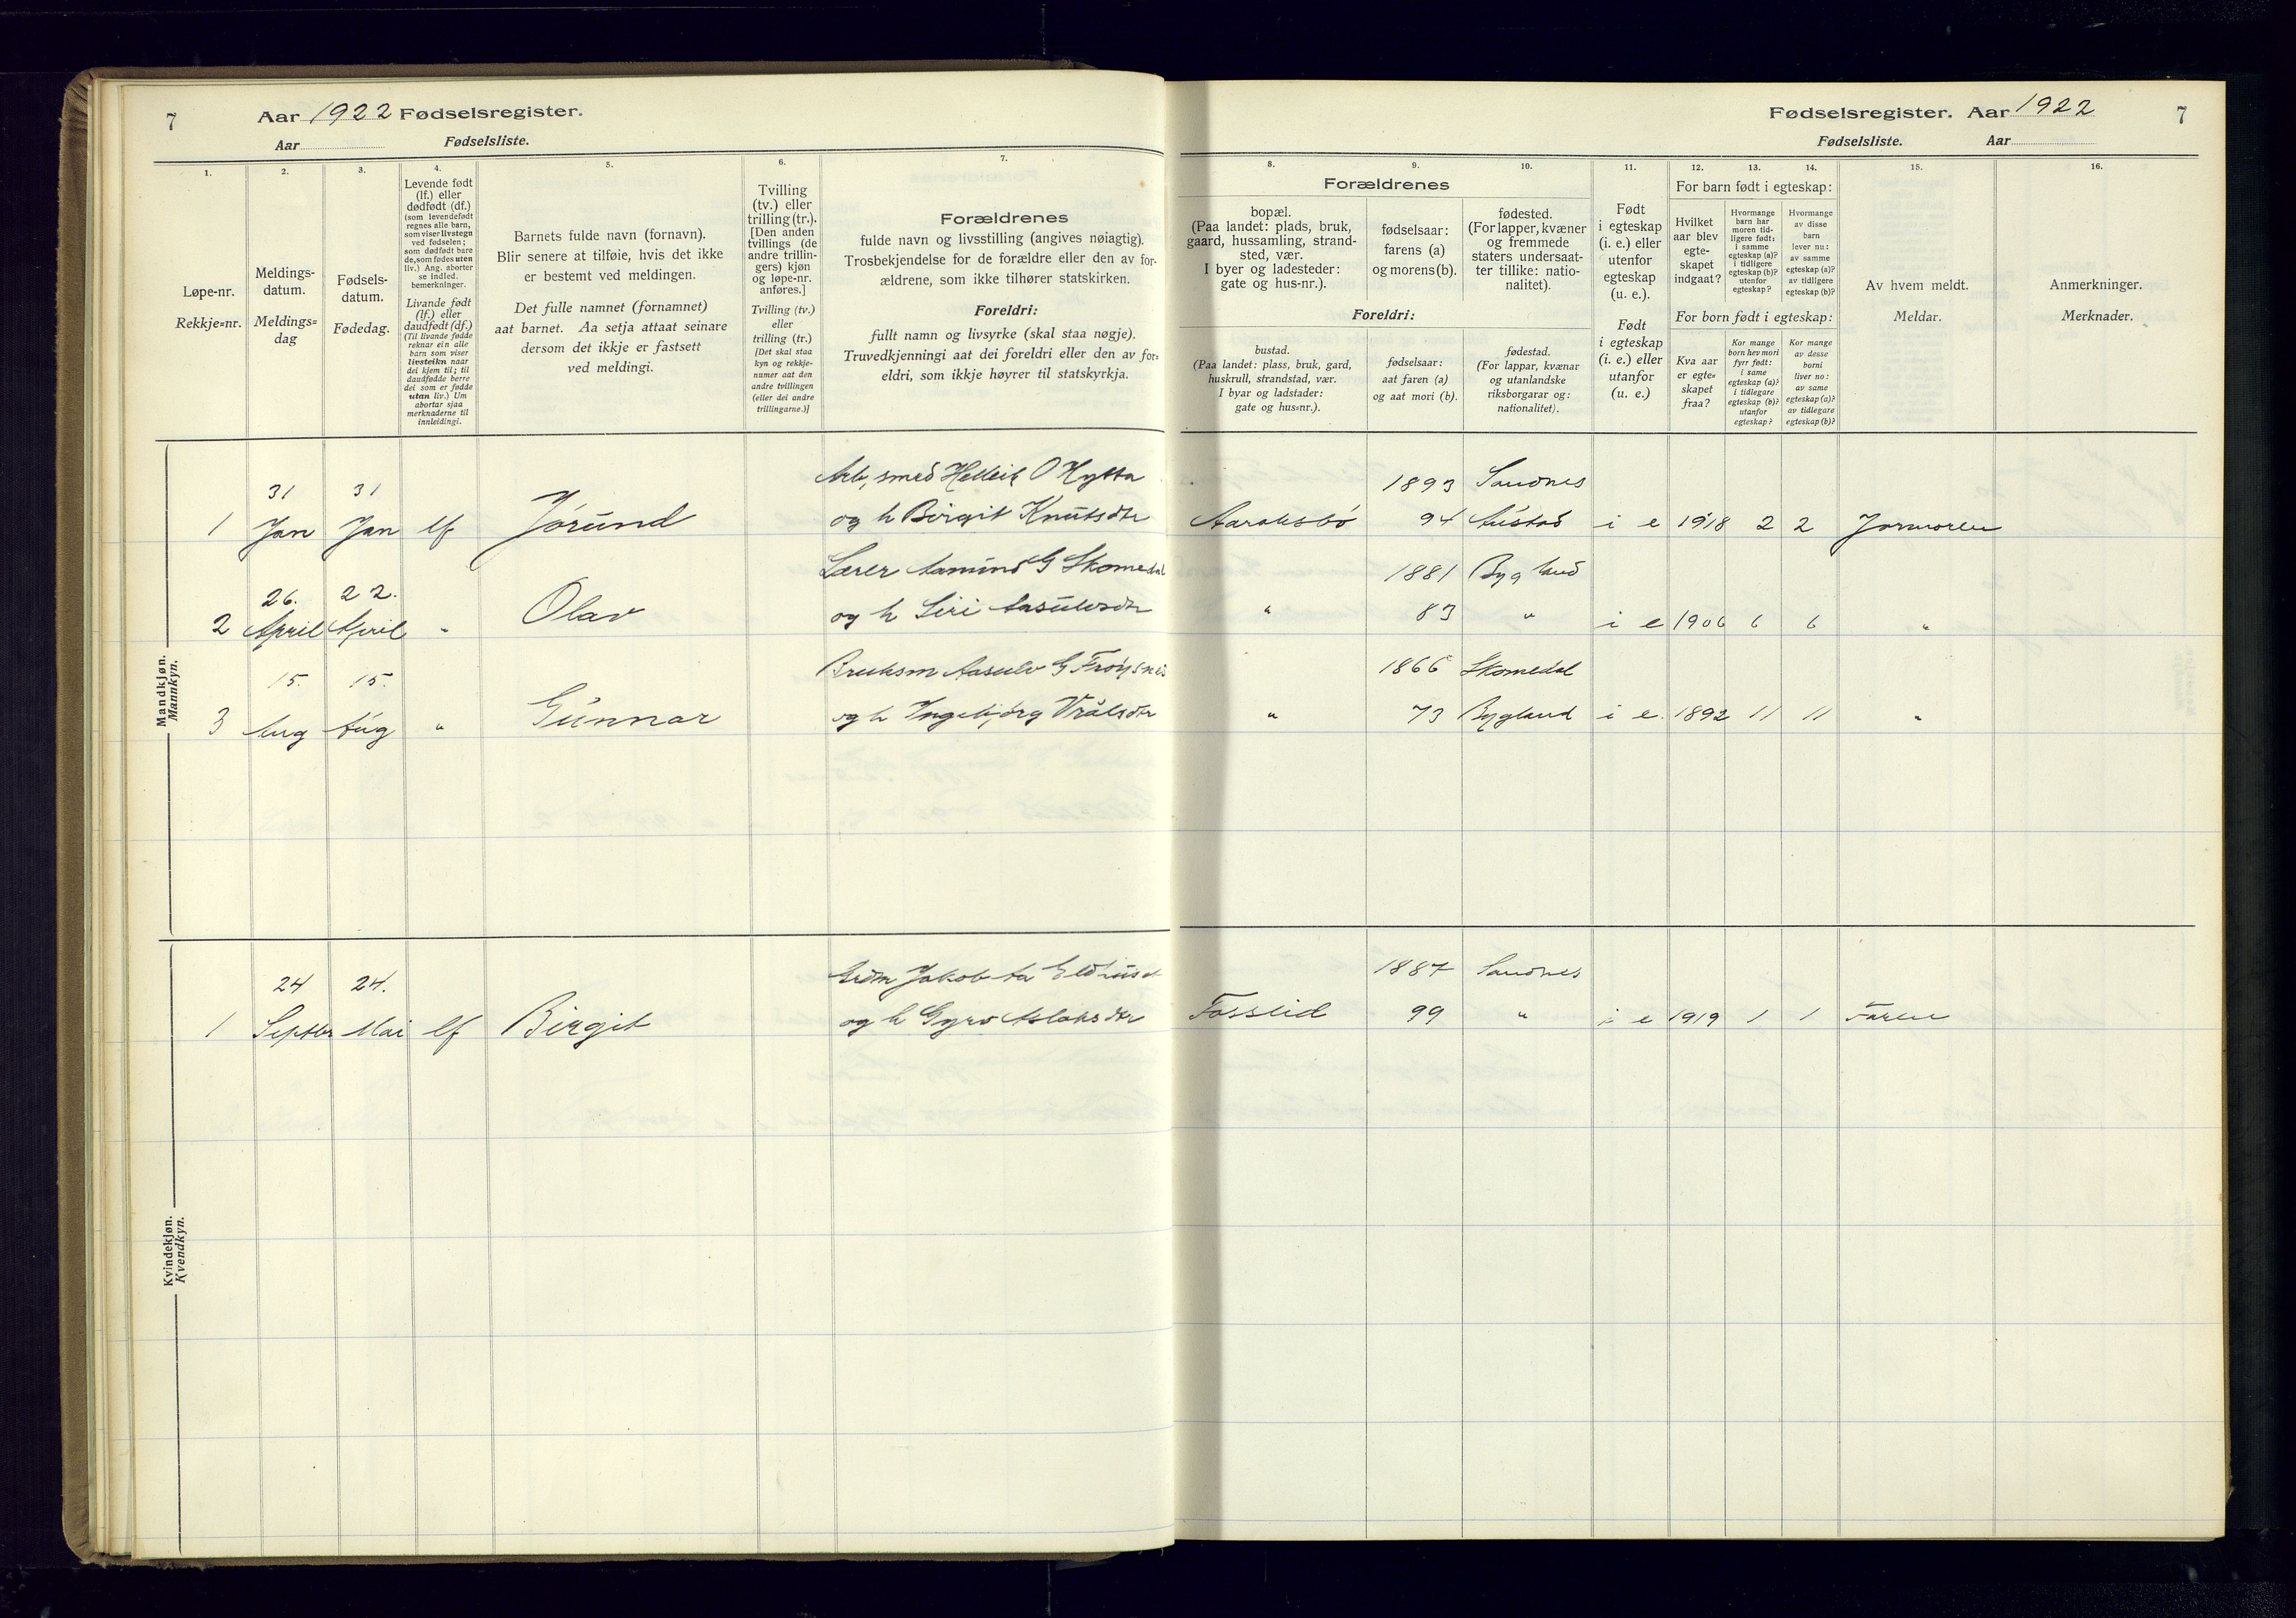 7
Aar 1922 Fødselsregister.
Aar Fødselsliste.
1.
2.
3.
4.
5.
6.
7.
Løpe-nr.
Rekkje=nr.
Meldings-
datum.
Meldings=
dag
Fødsels-
datum.
Fødedag.
Levende født
(lf.) eller
dødfødt (df.)
(som levendefødt
regnes alle barn,
som viser livstegn
ved fødselen;
som dødfødt bare
de, som fødes uten
liv.) Ang. aborter
se indled.
bemerkninger.
Livande født
(lf.) eller
daudfødt (df.)
(Til livande fødde
reknar ein alle
barn som viser
livsteikn naar
dei kjem til; til
daudfødde berre
dei som er fødde
utan liv.) Um
abortar sjaa
merknaderne til
innleidingi.
Barnets fulde navn (fornavn).
Blir senere at tilføie, hvis det ikke
er bestemt ved meldingen.
Det fulle namnet (fornamnet)
aat barnet. Aa setja attaat seinare
dersom det ikkje er fastsett
ved meldingi.
Tvilling
(tv.) eller
trilling (tr.).
[Den anden
tvillings (de
andre trillin-
gers) kjøn
og løpe-nr.
anføres.]
Tvilling (tv.)
eller
trilling (tr.)
[Det skal staa
kyn og rekkje-
numer aat den
andre tvillingen
(eller dei andre
trillingarne.)]
Forældrenes
fulde navn og livsstilling (angives nøiagtig).
Trosbekjendelse for de forældre eller den av for-
ældrene, som ikke tilhører statskirken.
Foreldri:
fullt namn og livsyrke (skal staa nøgje).
Truvedkjenningi aat dei foreldri eller den av for=
eldri, som ikkje høyrer til statskyrkja.
Mandkjøn.
Mannkyn.
31 31 Arb, smed Helleik O Hytta
1 Jan Jan lf Jorund og h Birgit Knutsdtr
Lærer Aamund G Skomedal
26. 22.
2 April April " Olav og h Siri Aasulvsdtr
Bruksm Aasulv G Frøysnes
15. 15.
3 Aug Aug " Gunnar og h Ingebjørg Vrålsdtr
Kvindekjøn.
Kvendkyn.
24 24. Jakob
1 Septbr Mai lf Birgit og h Gyro Aslaksdtr
Fødselsregister. Aar 1922
7
Fødselsliste. Aar
8.
9.
10.
11.
12.
13.
14.
15.
16.
Forældrenes
bopæl.
(Paa landet: plads, bruk,
gaard, hussamling, strand-
sted, vær.
I byer og ladesteder:
gate og hus-nr.).
fødselsaar:
farens (a)
og morens (b).
fødested.
(For lapper, kvæner
og fremmede
staters undersaat-
ter tillike: natio-
nalitet).
Foreldri:
bustad.
(Paa landet: plass, bruk, gard,
huskrull, strandstad, vær.
I byar og ladstader:
gate og hus=nr.).
fødselsaar:
aat faren (a)
og aat mori (b).
fødestad.
(For lappar, kvænar
og utanlandske
riksborgarar og:
nationalitet).
Født
i egteskap
(i. e.) eller
utenfor
egteskap
(u. e.).
Født
i egteskap
(i. e.) eller
utanfor
(u. e.)
For barn født i egteskap:
Hvilket
aar blev
egte-
skapet
indgaat?
Hvormange
barn har
moren tid-
ligere født:
i samme
egteskap (a)?
i tidligere
egteskap (b)?
utenfor
egteskap?
Hvormange
av disse
barn
lever nu:
av samme
egteskap (a)?
av tidligere
egteskap (b)?
For born født i egteskap:
Kva aar
er egte=
skapet
fraa?
Kor mange
born hev mori
fyrr født:
i same
egteskap (a)?
i tidlegare
egteskap (b)?
utanfor
egteskap?
Kor mange
av desse
borni
liver no:
av same
egteskap (a)?
av tidlegare
egteskap (b)?
Av hvem meldt.
Meldar.
Anmerkninger.
Merknader.
1893 Sandnes
Aaraksbø 94 Austad i e 1918 2 2 Jormoren
1881 Bygland
" 83 " i e 1906 6 6 "
1866 Skomedal
" 73 Bygland i e. 1892 11 11 "
1887 Sandnes
Fosslid 99 " i e 1919 1 1 Faren